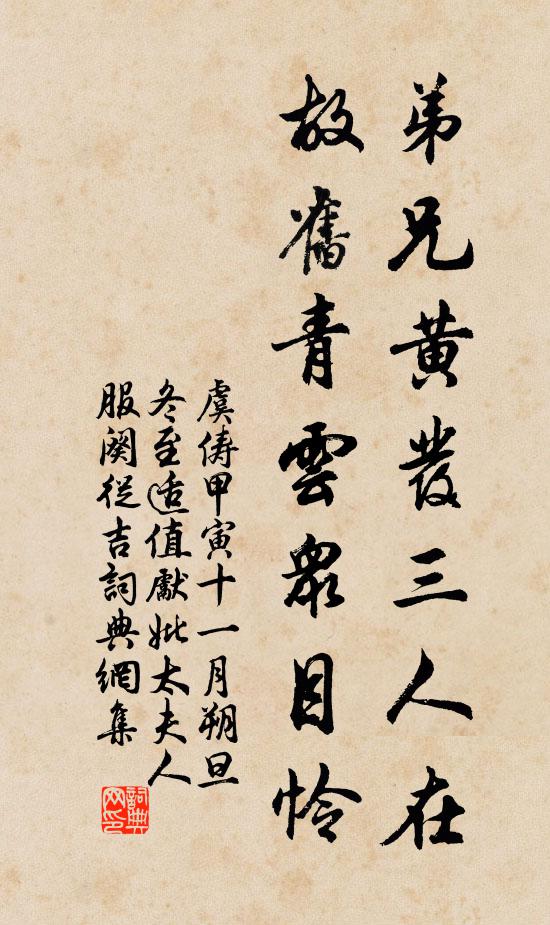 弟兄黄發三人在
故舊青雲衆目怜
虞儔甲寅十一月朔旦
冬至适值獻妣太夫人
服闋從吉詞典網集
詞典网印